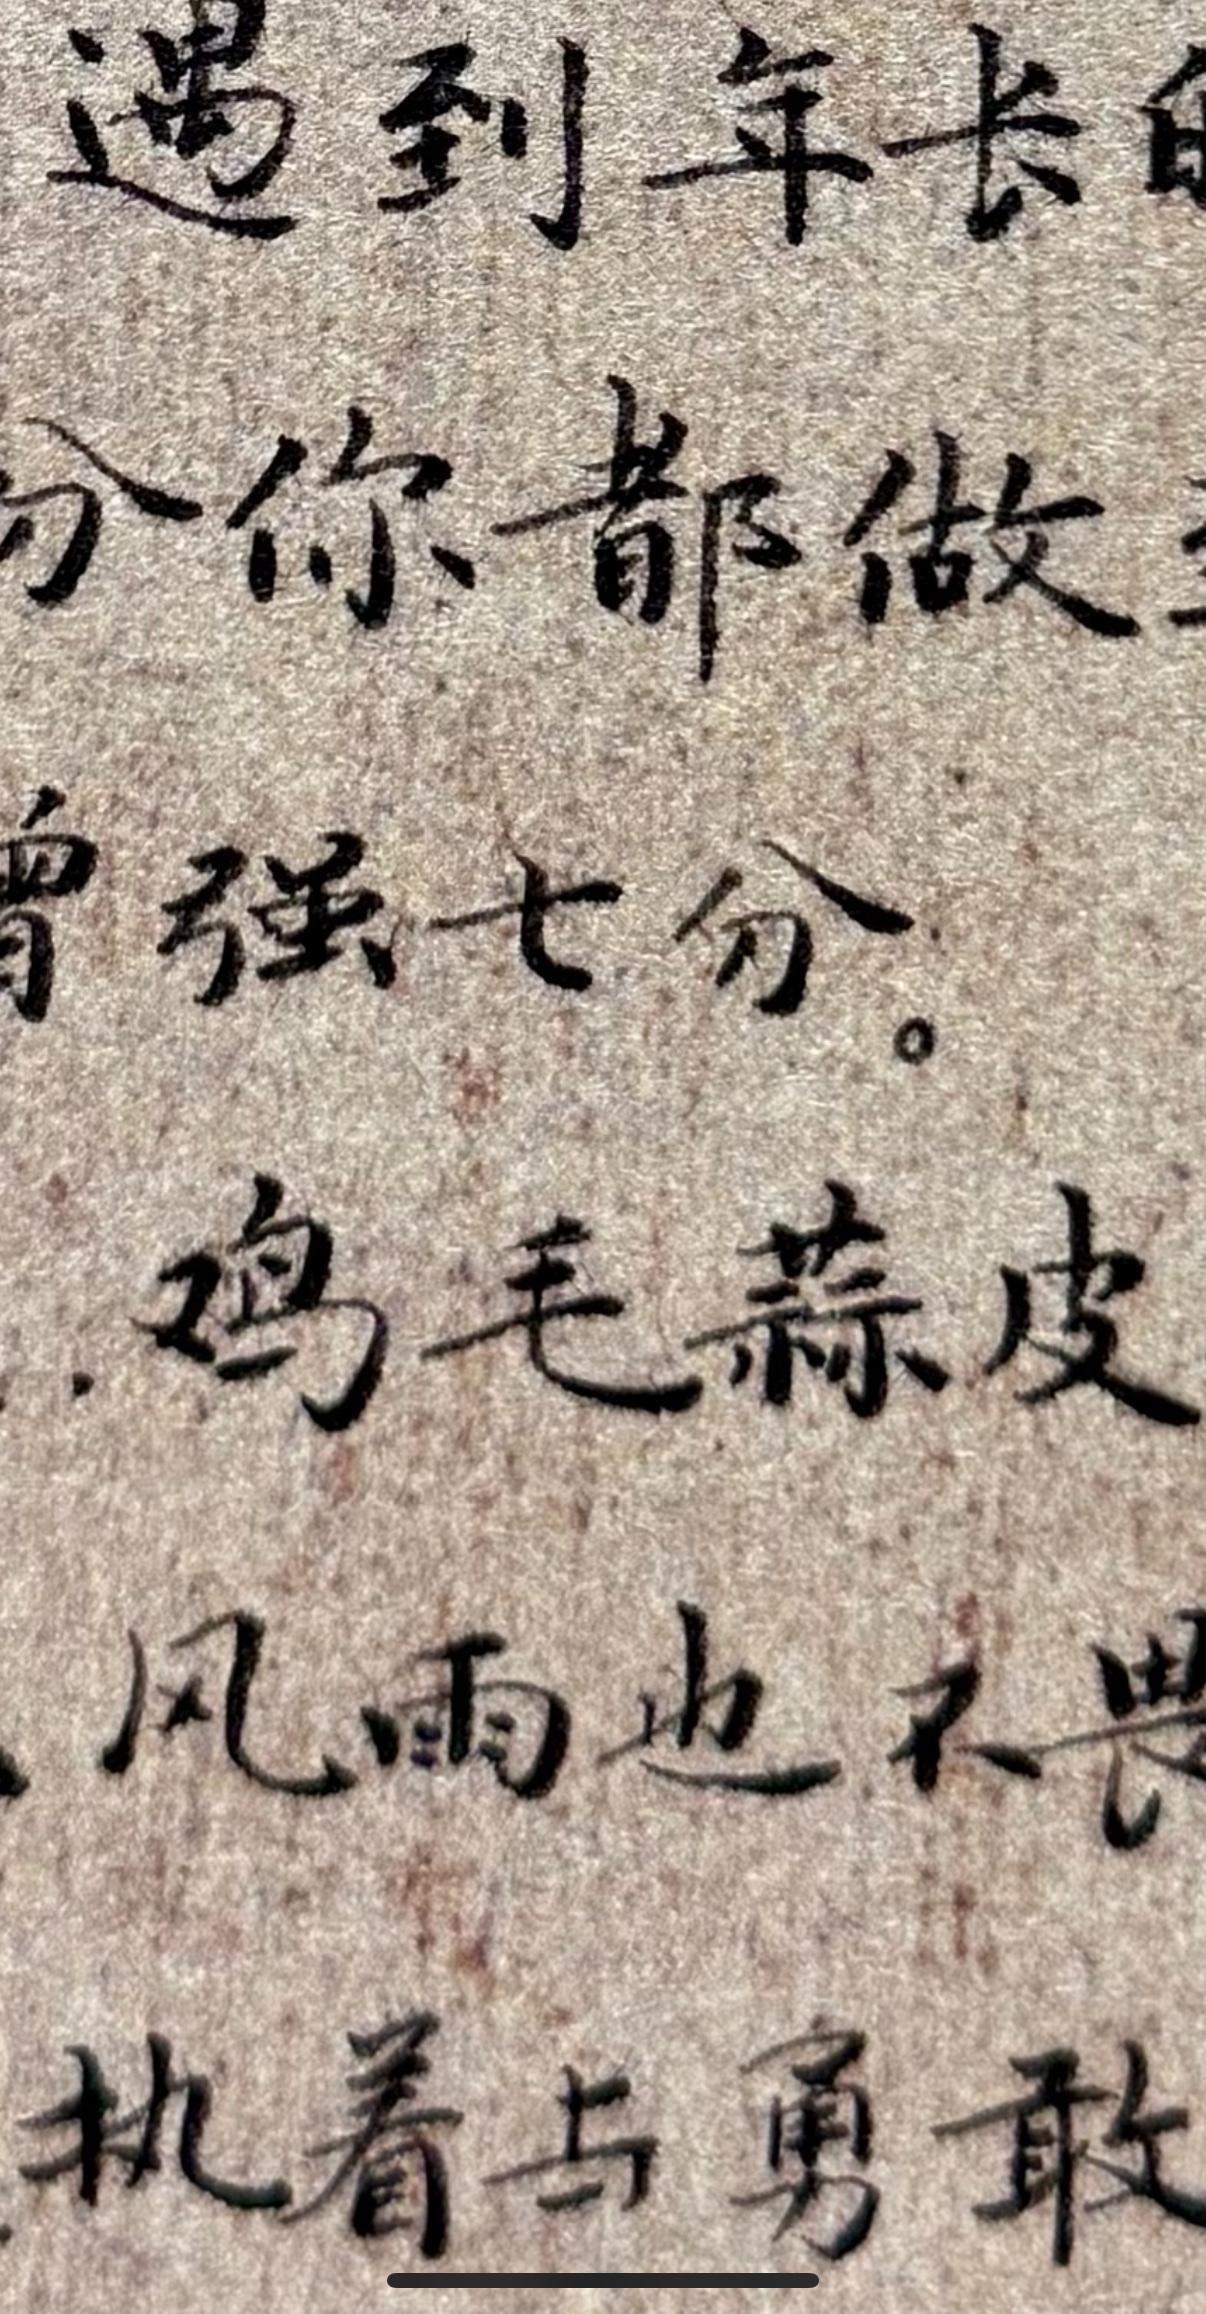 遇到年长的
分你都做
曾强七分。
鸡毛蒜皮
风雨也不畏
执着与勇敢